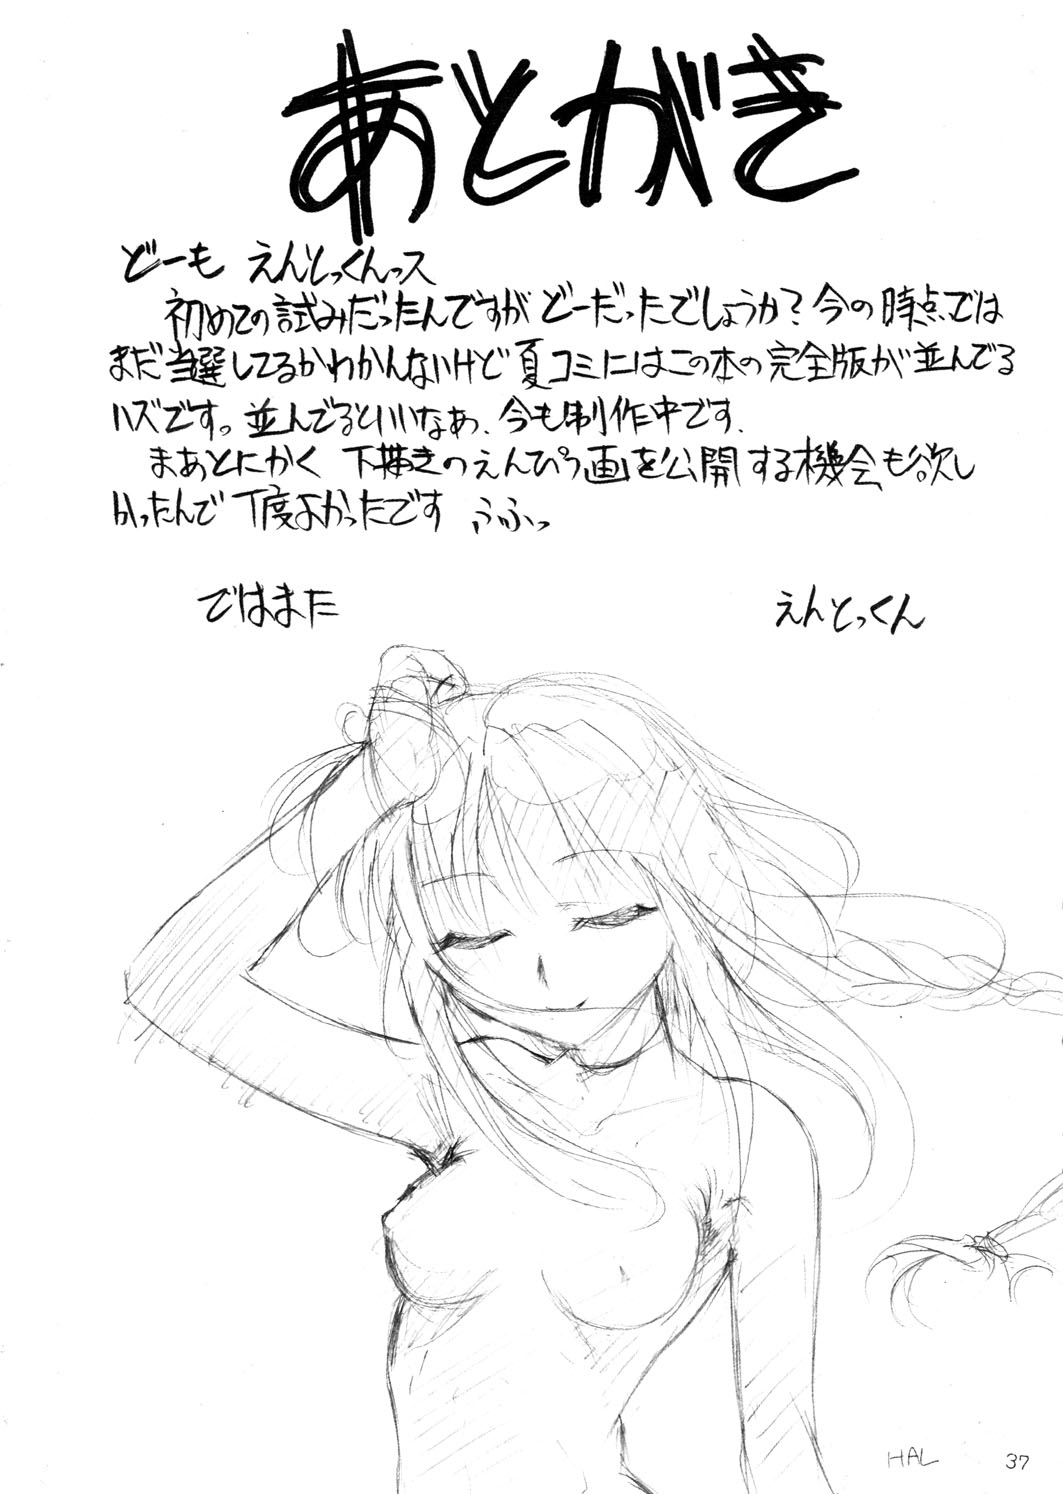 あとがき
どーも えんとっくんっス
初めての試みだったんですが どーだったでしょうか？今の時点では
まだ当選してるかわかんないけど夏コミにはこの本の完全版が並んでる
ハズです。並んでるといいなぁ、今も制作中です.
まあとにかく 下描きのえんぴつ画を公開する機会も欲し
かったんで 丁度よかったです ふふっ
ではまた
えんとっくん
HAL
37